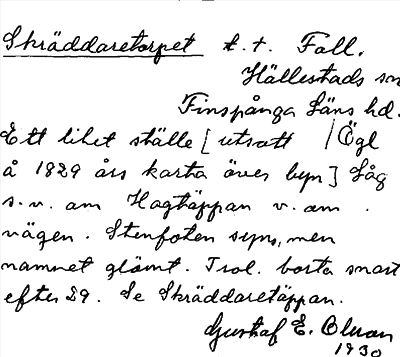 Skräddaretorpet t. t. Fall.
Hällestads sn
Finspånga Läns hd.
Ett litet ställe [utsatt / Ögl
å 1829 års karta över byn] Låg
s.v. om Hagtäppan v. om
vägen. Stenfoten syns, men
namnet glömt. Trol. borta snart
efter 29. Se Skräddaretäppan.
Gustaf E. Olson
1930